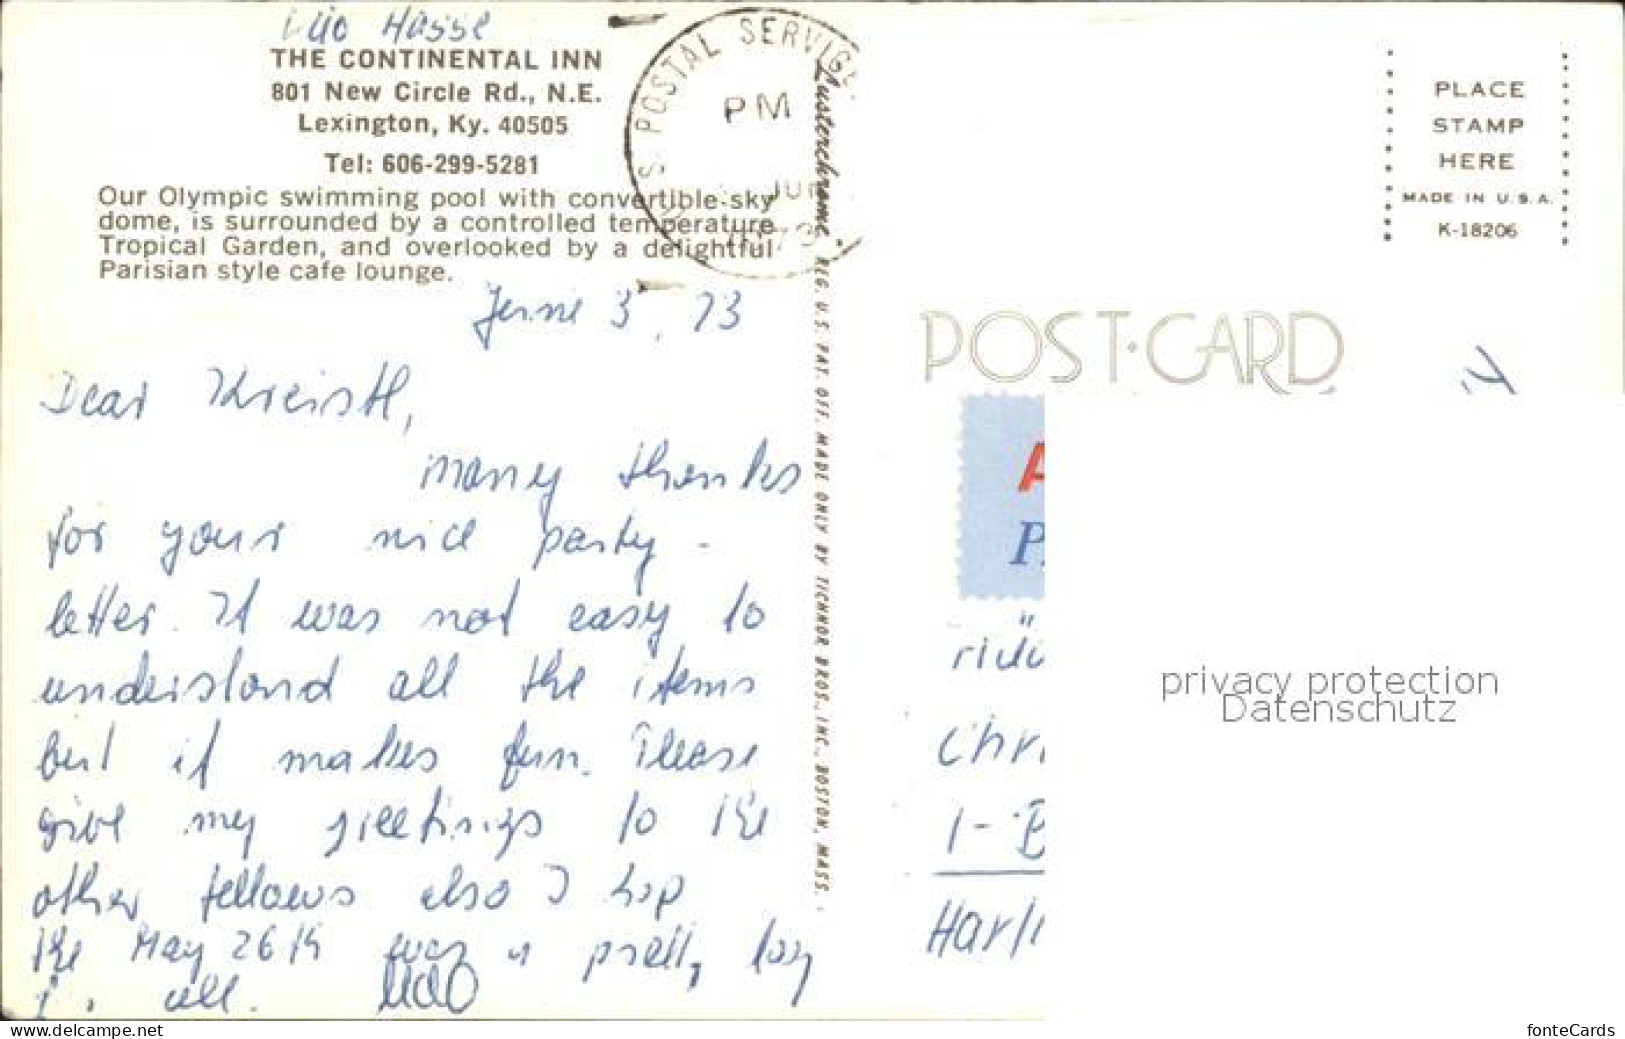 Udo Hasse
THE CONTINENTAL INN
801 New Circle Rd., N.E.
Lexington, Ky. 40505
Tel: 606-299-5281
Our Olympic swimming pool with convertible sky
dome, is surrounded by a controlled temperature
Tropical Garden, and overlooked by a delightful
Parisian style cafe lounge.
U S POSTAL SERVICE
PM
JUN
1973
June 3, 73
Dear
many thanks
for your nice party-
letter. It was not easy to
understand all the items
but it makes fun. Please
give my greetings to the
other fellows also I hop
the May 26th was a pretty day
all. Udo
Lusterchrome REG. U.S. PAT. OFF. MADE ONLY BY TICHNOR BROS., INC., BOSTON, MASS.
PLACE
STAMP
HERE
MADE IN U.S.A.
K-18206
POST·CARD
A
P
Chri
1-B
Harli
privacy protection
Datenschutz
www.delcampe.net
fonteCards